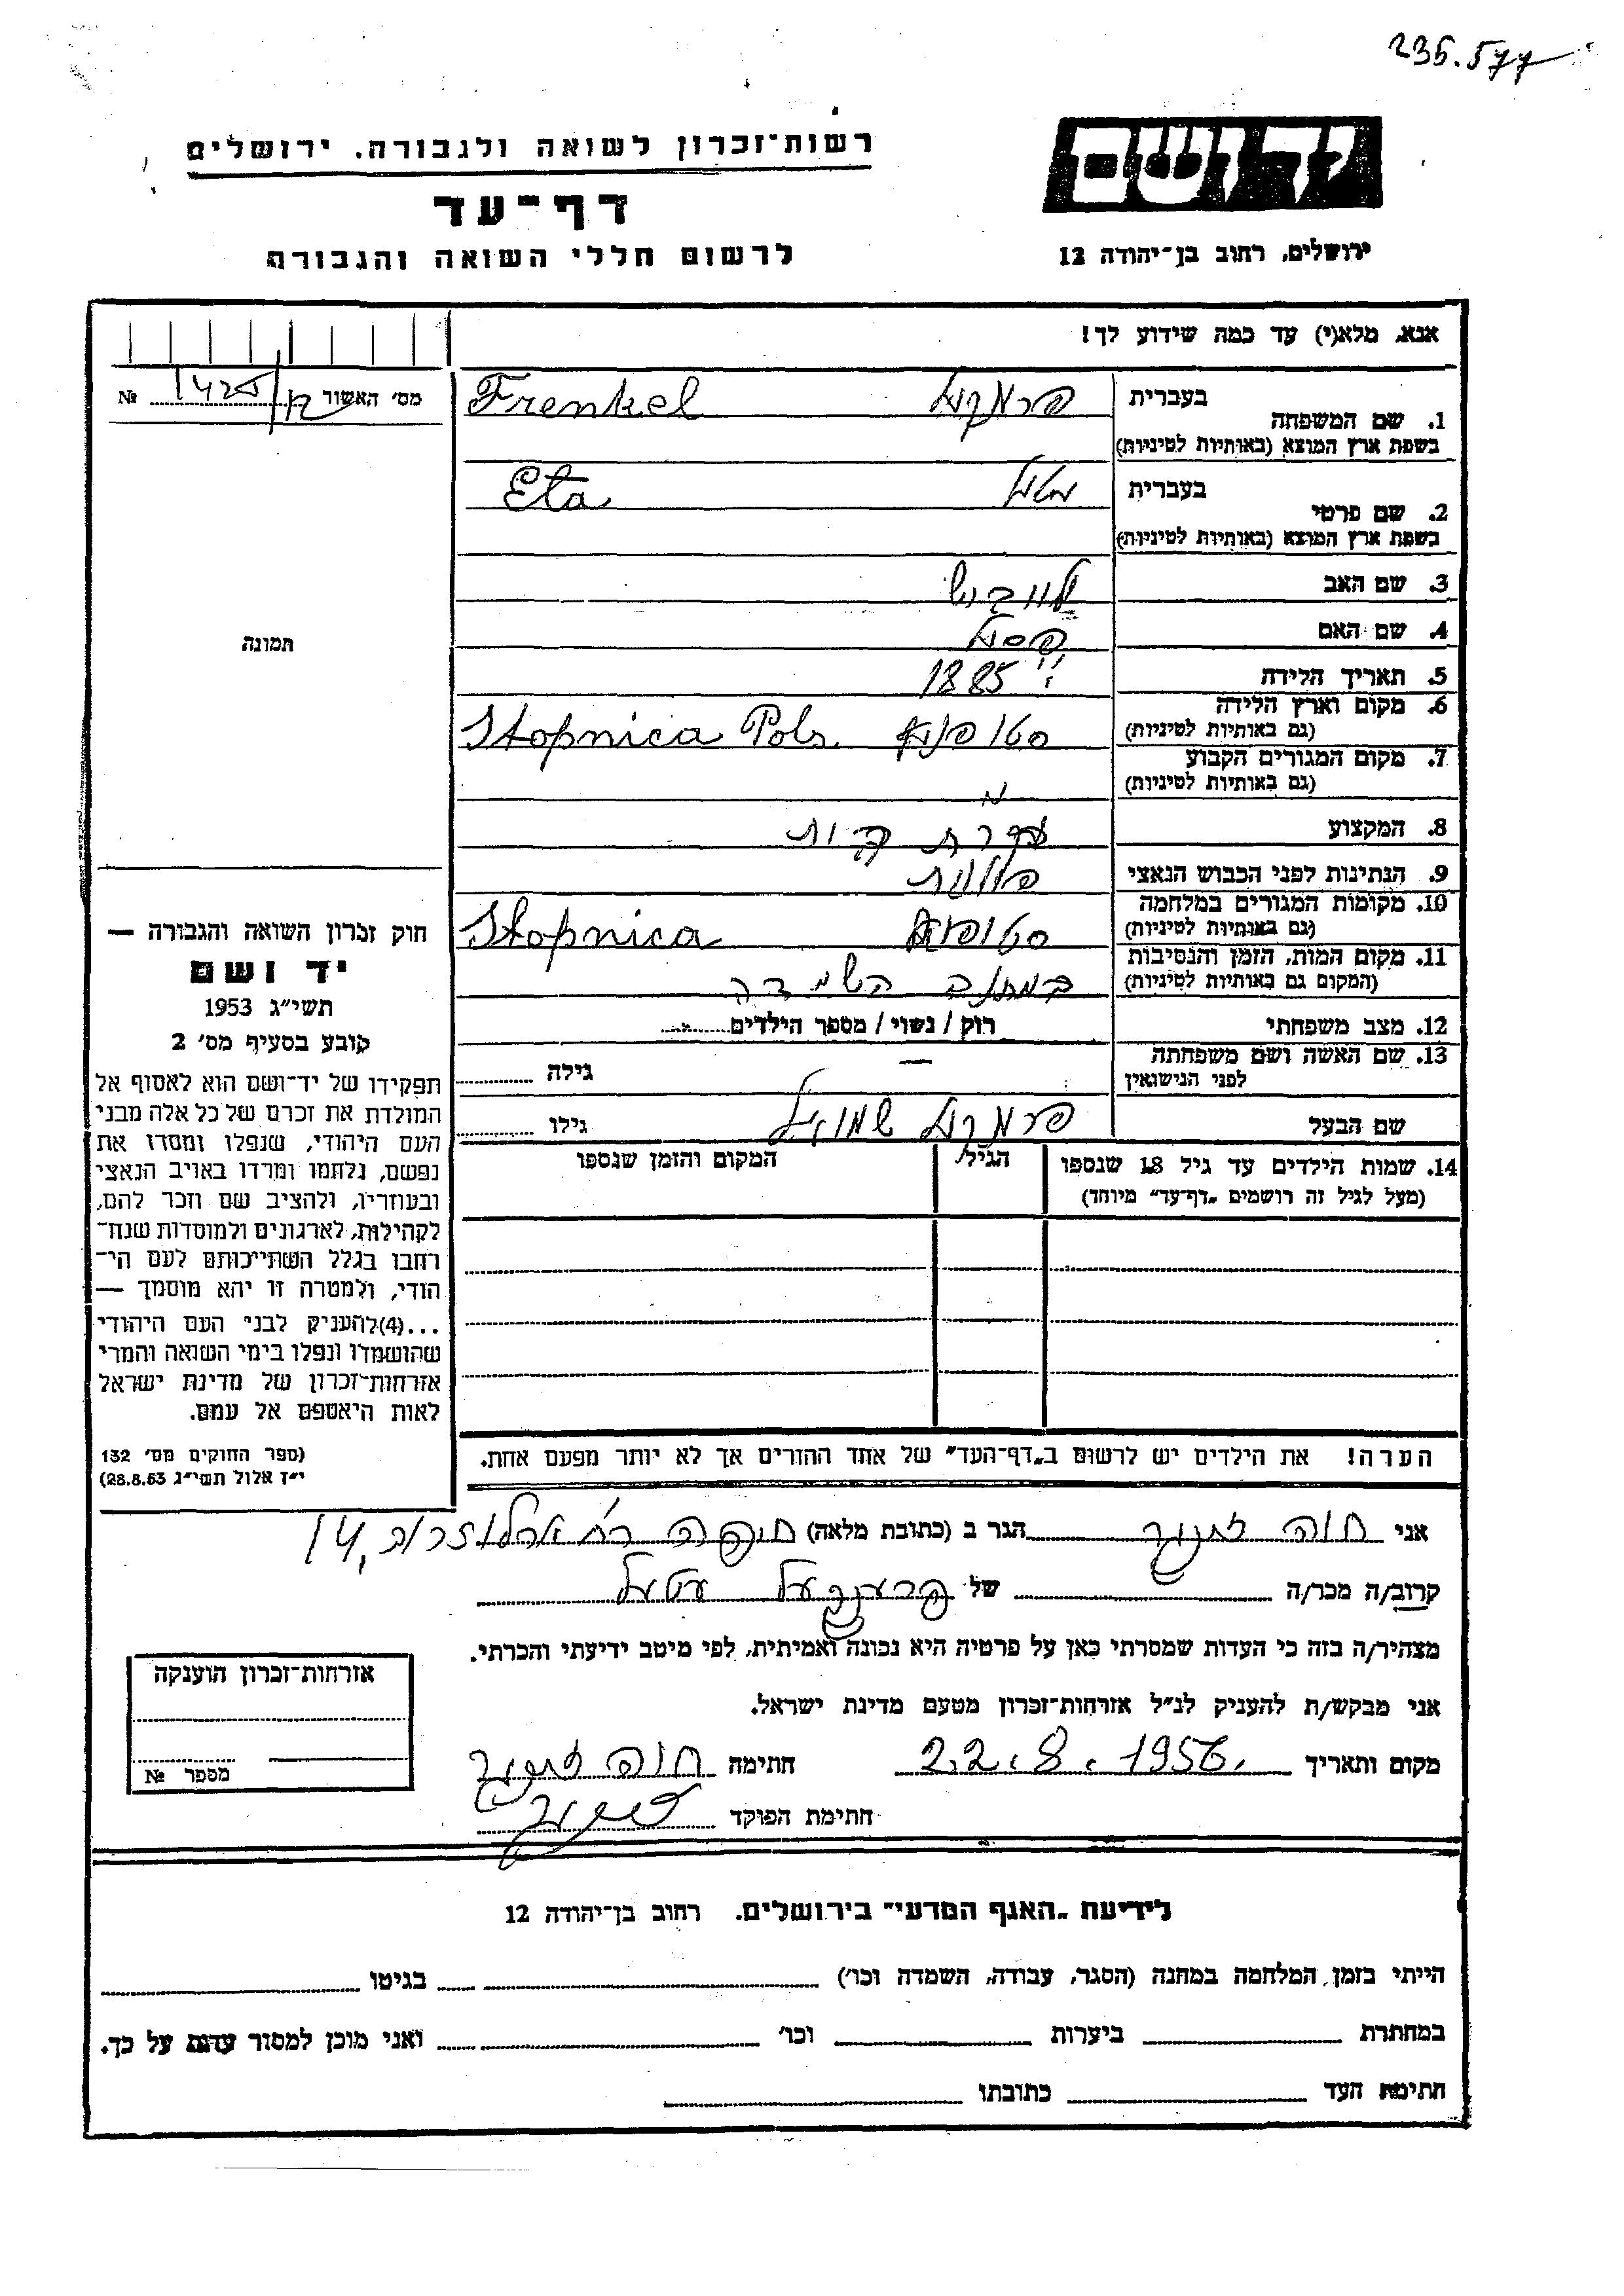 235.577
יד ושם
רשות־זכרון לשואה ולגבורה, ירושלים
דף־עד
לרשום חללי השואה והגבורה
ירושלים, רחוב בן־יהודה 12
אנא, מלא(י) עד כמה שידוע לך!
מס' האשור № 1425
תמונה
1. שם המשפחה בעברית פרנקל Frenkel
בשפת ארץ המוצא (באותיות לטיניות)
2. שם פרטי בעברית Eta
בשפת ארץ המוצא (באותיות לטיניות)
3. שם האב לייביש
4. שם האם פסל
5. תאריך הלידה 1885
6. מקום וארץ הלידה Stopnica Pols.
(גם באותיות לטיניות)
7. מקום המגורים הקבוע
(גם באותיות לטיניות)
8. המקצוע עקרת בית
9. הנתינות לפני הכבוש הנאצי פולנית
10. מקומות המגורים במלחמה Stopnica
(גם באותיות לטיניות)
11. מקום המות, הזמן והנסיבות במחנה השמדה
(המקום גם באותיות לטיניות)
12. מצב משפחתי רוק / נשוי / מספר הילדים
13. שם האשה ושם משפחתה — גילה
לפני הנישואין
שם הבעל פרנקל שמואל גילו
14. שמות הילדים עד גיל 18 שנספו הגיל המקום והזמן שנספו
(מעל לגיל זה רושמים „דף־עד" מיוחד)
הערה! את הילדים יש לרשום ב„דף־העד" של אחד ההורים אך לא יותר מפעם אחת.
חוק זכרון השואה והגבורה —
יד ושם
תשי"ג 1953
קובע בסעיף מס' 2
תפקידו של יד־ושם הוא לאסוף אל
המולדת את זכרם של כל אלה מבני
העם היהודי, שנפלו ומסרו את
נפשם, נלחמו ומרדו באויב הנאצי
ובעוזריו, ולהציב שם וזכר להם,
לקהילות, לארגונים ולמוסדות שנח־
רחבו בגלל השתייכותם לעם הי־
הודי, ולמטרה זו יהא מוסמך —
...(4)להעניק לבני העם היהודי
שהושמדו ונפלו בימי השואה והמרי
אזרחות־זכרון של מדינת ישראל
לאות היאספם אל עמם.
(ספר החוקים מס' 132
י"ז אלול תשי"ג 28.8.53)
אני חוה הגר ב (כתובת מלאה) חיפה רח' ארלוזרוב 14
קרוב/ה מכר/ה של פרענקעל עטל
מצהיר/ה בזה כי העדות שמסרתי כאן על פרטיה היא נכונה ואמיתית, לפי מיטב ידיעתי והכרתי.
אני מבקש/ת להעניק לנ"ל אזרחות־זכרון מטעם מדינת ישראל.
מקום ותאריך 22.8.1956 חתימה חוה
חתימת הפוקד
אזרחות־זכרון הוענקה
מספר №
לידיעת „האגף המדעי" בירושלים. רחוב בן־יהודה 12
הייתי בזמן המלחמה במחנה (הסגר, עבודה, השמדה וכו') בגיטו
במחתרת ביערות וכו' ואני מוכן למסור עדות על כך.
חתימת העד כתובתו